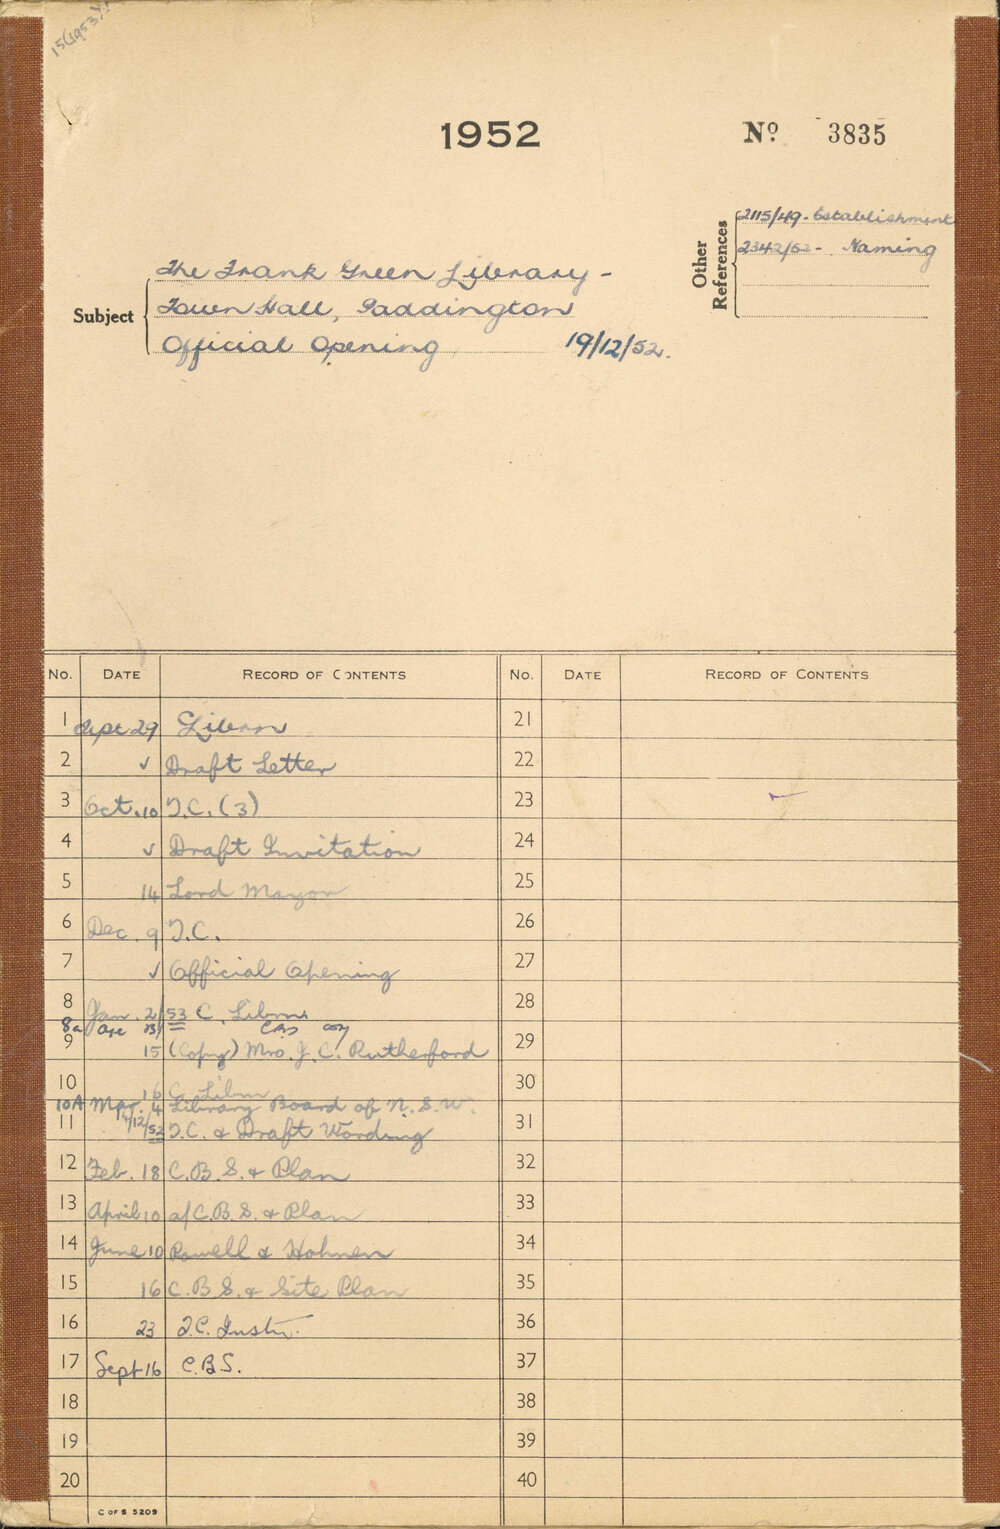 15(1953)
1952
Nº 3835
Other References
2115/49 - Establishment
2342/52 - Naming
Subject
The Frank Green Library -
Town Hall, Paddington
Official Opening 19/12/52.
No. DATE RECORD OF CONTENTS No. DATE RECORD OF CONTENTS
1 Sept 29 Librn 21
2 ✓ Draft Letter 22
3 Oct. 10 T.C. (3) 23
4 ✓ Draft Invitation 24
5 14 Lord Mayor 25
6 Dec. 9 T.C. 26
7 ✓ Official Opening 27
8 Jan. 2/53 C. Librn 28
8a 13/ CBS
9 15 (Copy) Mrs. J. C. Rutherford 29
10 16 C. Librn 30
10A Mar. 4 Library Board of N.S.W.
11 4/12/52 T.C. & Draft Wording 31
12 Feb. 18 C.B.S. & Plan 32
13 April 10 a/C.B.S. & Plan 33
14 June 10 Powell & Hohnen 34
15 16 C.B.S. & Site Plan 35
16 23 T.C. Instr. 36
17 Sept 16 C.B.S. 37
18 38
19 39
20 40
C OF S 5209